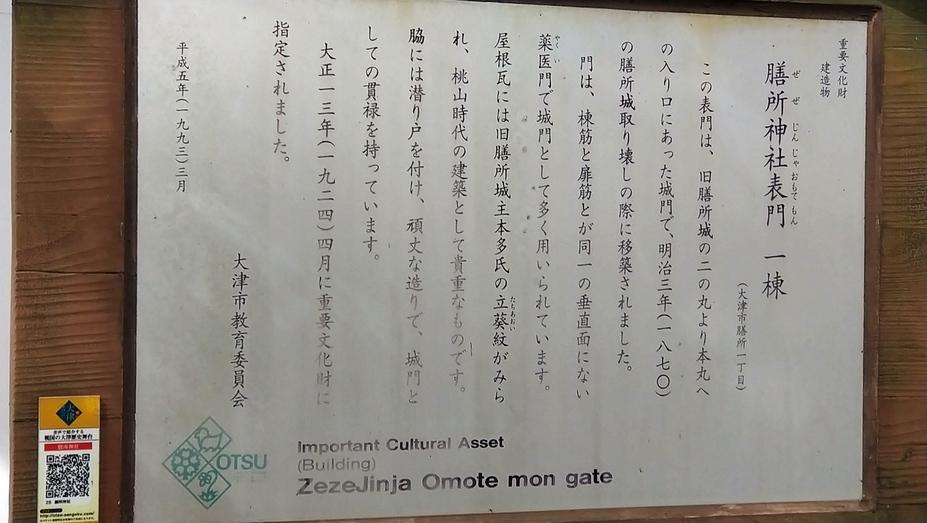 重要文化財
建造物
膳所神社表門 一棟
ぜ ぜ じんじゃおもてもん
(大津市膳所一丁目)
この表門は、旧膳所城の二の丸より本丸へ
の入り口にあった城門で、明治三年(一八七〇)
の膳所城取り壊しの際に移築されました。
門は、棟筋と扉筋とが同一の垂直面にない
薬医門で城門として多く用いられています。
やくい
屋根瓦には旧膳所城主本多氏の立葵紋がみら
たちあおい
れ、桃山時代の建築として貴重なものです。
脇には潜り戸を付け、頑丈な造りで、城門と
しての貫禄を持っています。
大正一三年(一九二四)四月に重要文化財に
指定されました。
大津市教育委員会
平成五年(一九九三)三月
OTSU
Important Cultural Asset
(Building)
ZezeJinja Omote mon gate
戦国の大津歴史舞台
膳所神社
25 膳所神社
http://otsu-sengoku.com/